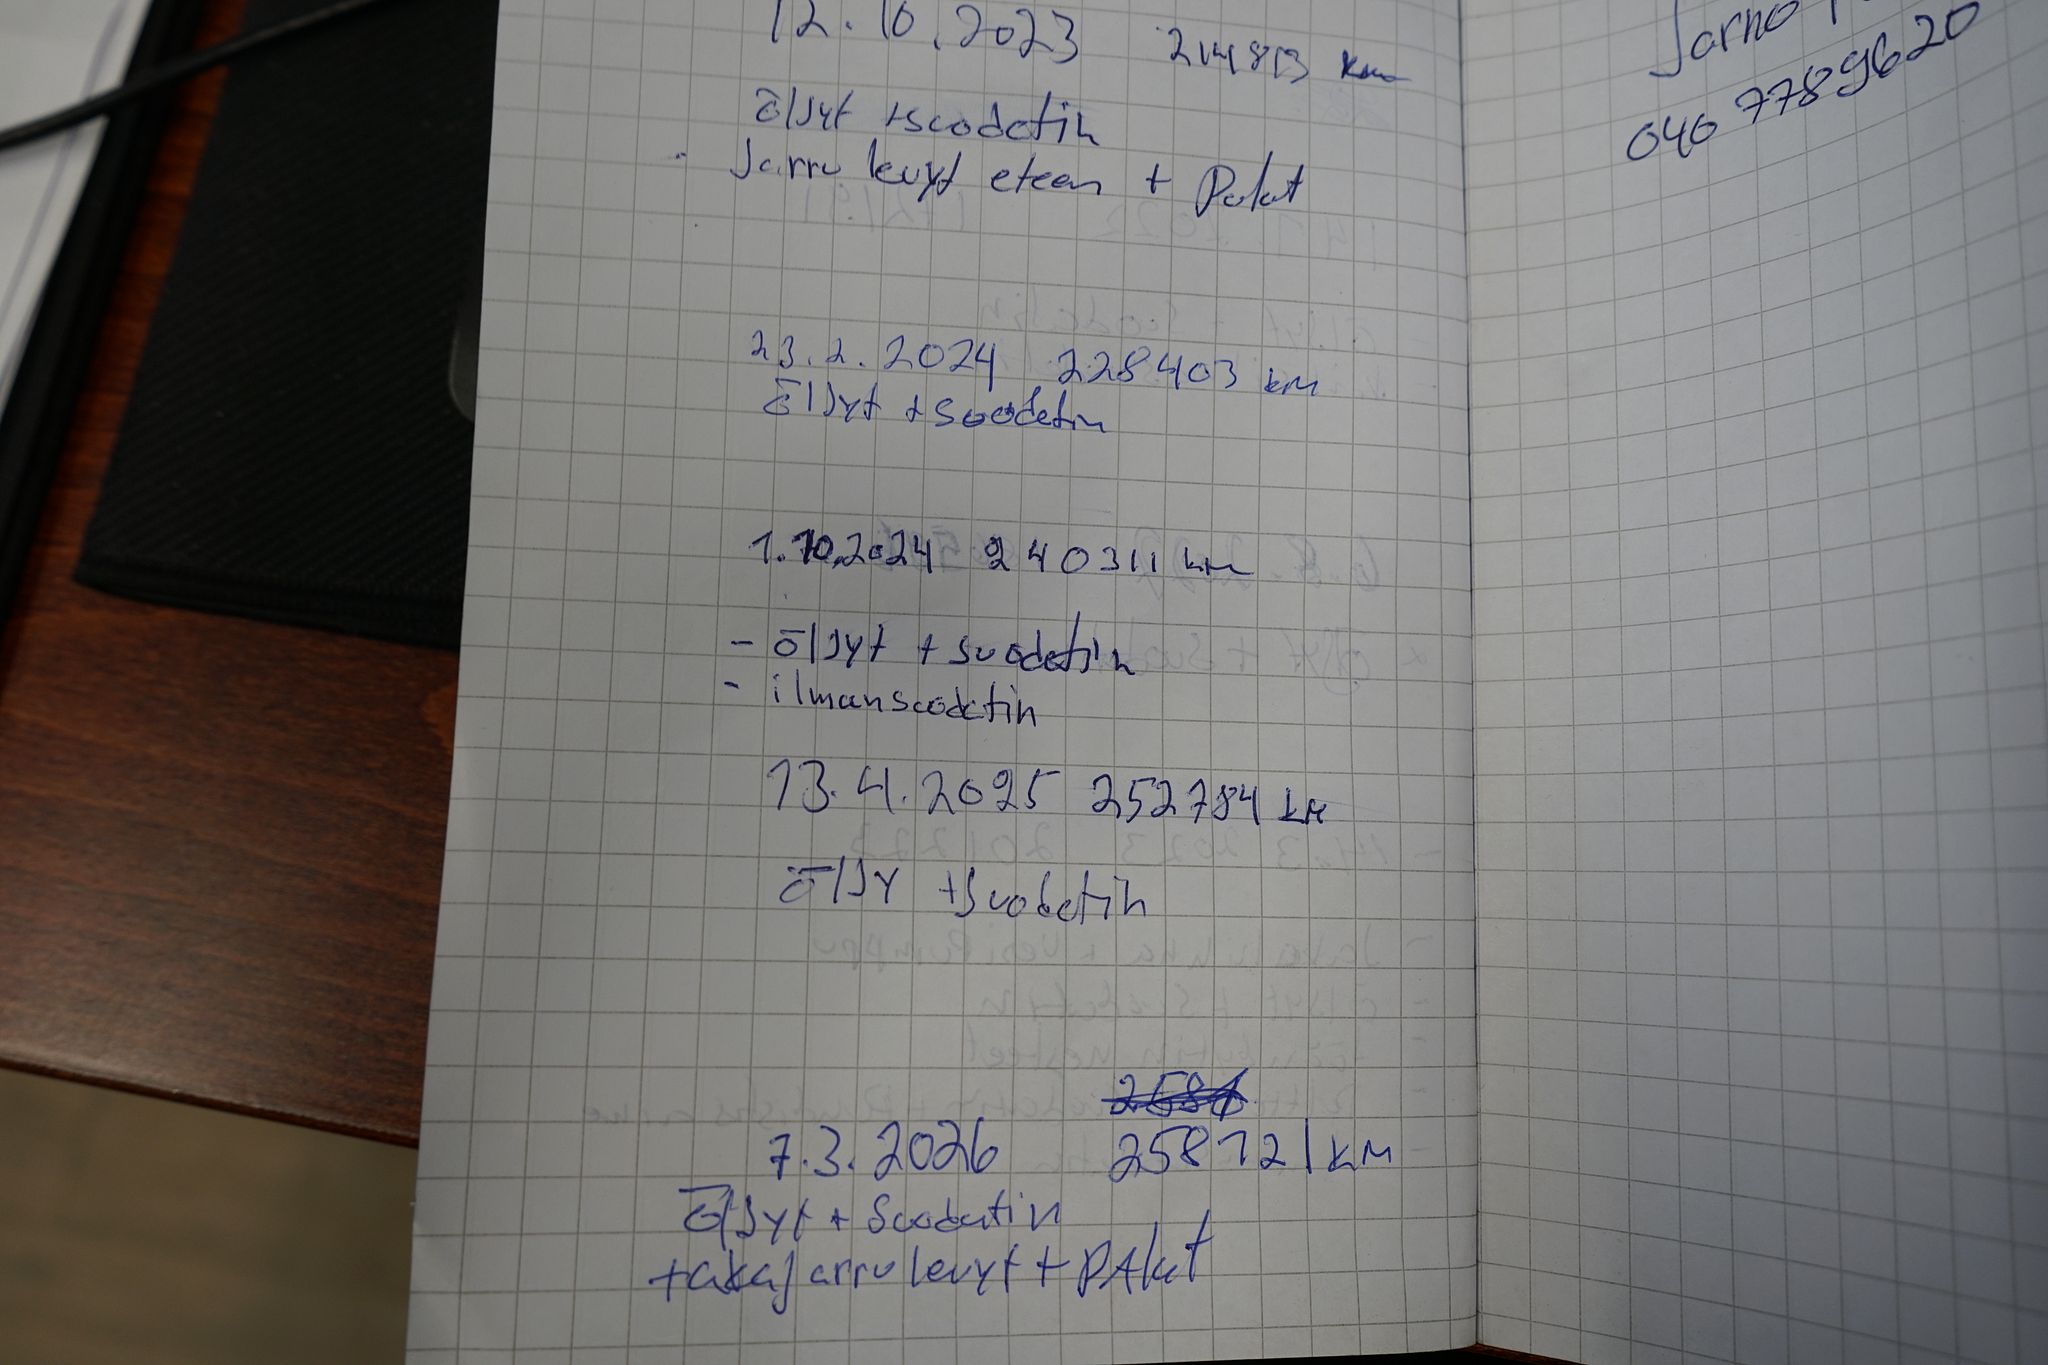 12.10.2023 214813 km
öljyt + suodatin
- Jarru levyt eteen + Palat
23.2.2024 228403 km
öljyt + suodatin
1.10.2024 240311 km
- öljyt + suodatin
- ilmansuodatin
13.4.2025 252784 km
öljy + suodatin
7.3.2026 258121 km
öljyt + suodatin
+ takajarru levyt + PAlat
Jarno
040 7789620